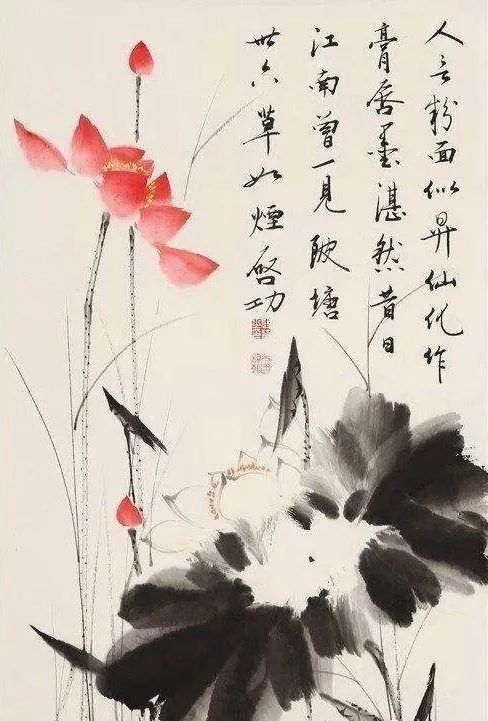 人言粉面似昇仙化作
膏唇墨湛然昔日
江南曾一見陂塘
卅六草如煙啓功